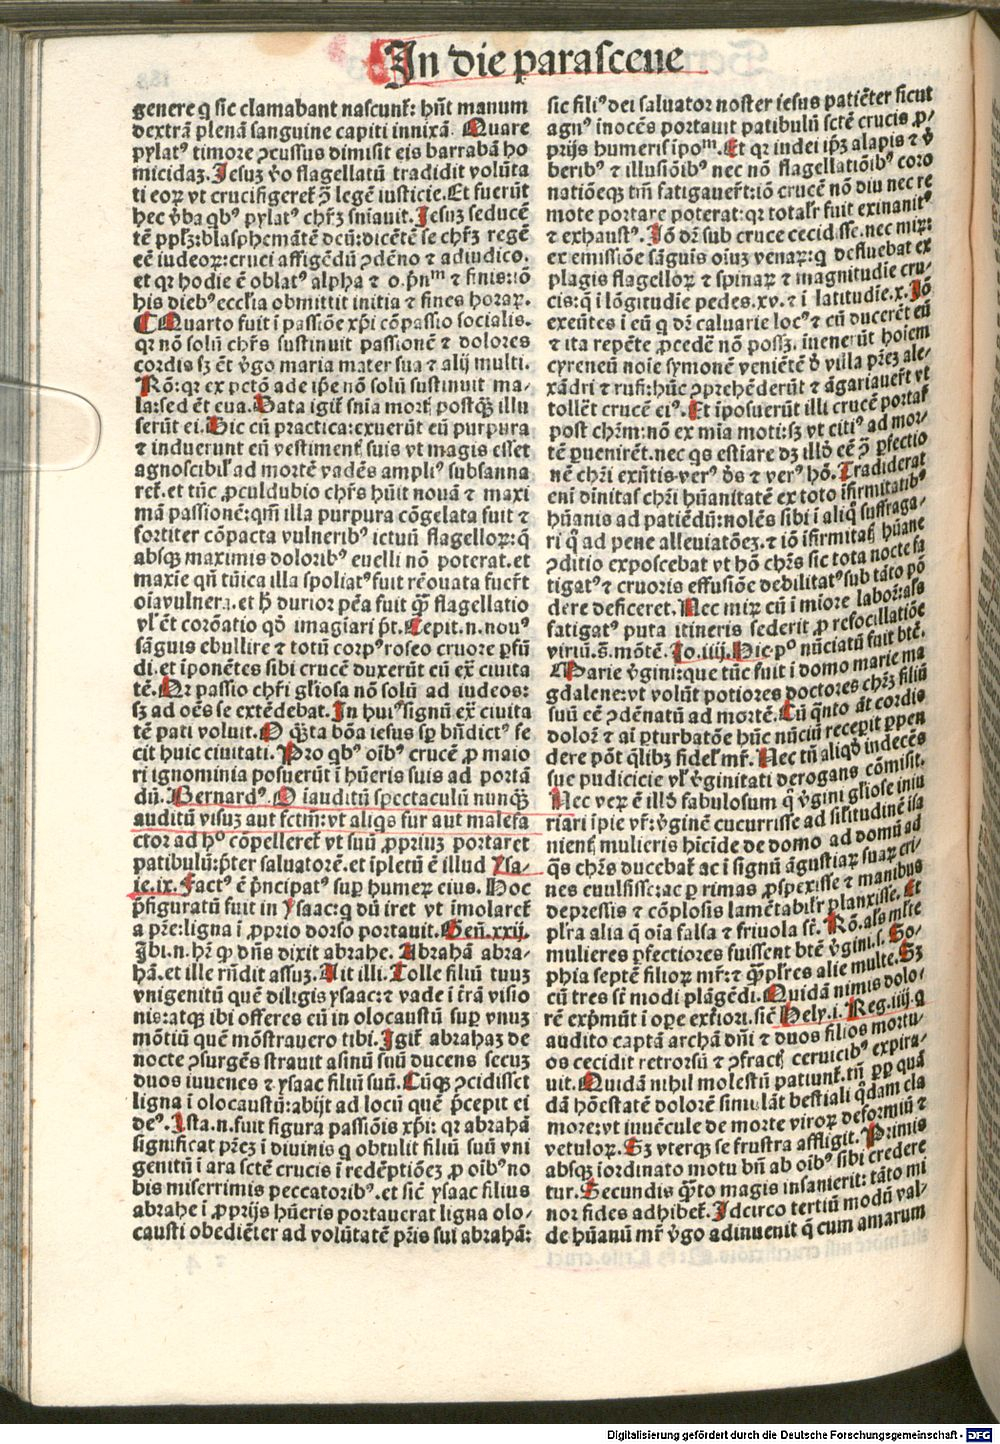 In die parasceue
genere q̄ sic clamabant nascunt᷑: hn̄t manum
dextrā plenā sanguine capiti innixā. Quare
pylatꝰ timore ꝯcussus dimisit eis barrabā ho
micidaꝫ. Jesuꝫ v̄o flagellatū tradidit volūta
ti eoꝝ vt crucifigeret᷑ ꝯ̄ legē iusticie. Et fuerūt
hec v̄ba qbꝰ pylatꝰ chr̄ꝫ snīauit. Jesuꝫ seducē
tē pplꝫ: blasphemātē deū: dicētē se chr̄ꝫ regē
eē iudeoꝝ: cruci affigēdū ꝯdēno ⁊ adiudico.
et qꝛ hodie ē oblatꝰ alpha ⁊ o. pn̄ᵐ ⁊ finis: iō
his diebꝰ eccl̄ia obmittit initia ⁊ fines horaꝝ.
Quarto fuit ī passiōe xp̄i cōpassio socialis.
qꝛ nō solū chr̄s sustinuit passionē ⁊ dolores
cordis sꝫ ēt v̄go maria mater sua ⁊ alij multi.
Rō: qꝛ ex pctō ade ip̄e nō solū sustinuit ma-
la: sed ēt eua. Data igit᷑ snīa mort᷑ postꝙ̄ illu
serūt ei. Sic cū practica: exuerūt eū purpura
⁊ induerunt eū vestiment᷑ suis vt magis esset
agnoscibil᷑ ad mortē vadēs ampliꝰ subsanna
ret᷑. et tūc ꝓculdubio chr̄s hūit nouā ⁊ maxi
mā passionē: qm̄ illa purpura cōgelata fuit ⁊
fortiter cōpacta vulneribꝰ ictuū flagelloꝝ: q̄
absqꝫ maximis doloribꝰ euelli nō poterat. et
maxīe qn̄ tūica illa spoliatꝰ fuit rēouata fuer̄t
oīa vulnera. et h̄ durior pēa fuit ꝙ̄ flagellatio
vl᷑ ēt corōatio qd̄ imagīari pt̄. Cepit. n. nouꝰ
sāguis ebullire ⁊ totū corpꝰ roseo cruore ꝑfū
di. et īponētes sibi crucē duxerūt eū ex̄ ciuita
tē. Qꝛ passio chr̄i gl̄iosa nō solū ad iudeos:
sꝫ ad oēs se extēdebat. In huiꝰ signū ex̄ ciuita
tē pati voluit. O ꝙ̄ta bōa iesus sꝑ bn̄dictꝰ fe
cit huic ciuitati. Pro qbꝰ oībꝰ crucē ꝓ maio
ri ignominia posuerūt ī hūeris suis ad portā
dū. Bernardꝰ. O īauditū spectaculū nunꝙ̄
auditū visuꝫ aut fctm̄: vt aliqs fur aut malefa
ctor ad hᵒ cōpelleret᷑ vt suū ꝓpriuꝫ portaret
patibulū: p̄ter saluatorē. et īpletū ē illud Ysa-
ie. ix. Factꝰ ē p̄ncipatꝰ suꝑ humeꝝ eius. Hoc
p̄figuratū fuit in ysaac: q dū iret vt īmolaret᷑
a pr̄e: ligna ī ꝓprio dorso portauit. Gen̄. xxij.
Ibi. n. hr̄ ꝙ dn̄s dixit abrahe. Abrahā abra-
hā. et ille rn̄dit assuꝫ. Ait illi. Tolle filiū tuuꝫ
vnigenitū quē diligis ysaac: ⁊ vade ī tr̄ā visio
nis: atqꝫ ibi offeres eū in olocaustū suꝑ vnuꝫ
mōtiū quē mōstrauero tibi. Igit᷑ abrahaꝫ de
nocte ꝯsurgēs strauit asinū suū ducens secuꝫ
duos iuuenes ⁊ ysaac filiū suū. Cūqꝫ ꝯcidisset
ligna ī olocaustū: abijt ad locū quē p̄cepit ei
deꝰ. Ista. n. fuit figura passiōis xp̄i: qꝛ abrahā
significat pr̄eꝫ ī diuinis q obtulit filiū suū vni
genitū ī ara sctē crucis ī redēptiōeꝫ ꝓ oībꝰ no
bis miserrimis peccatoribꝰ. et sic̄ ysaac filius
abrahe ī ꝓprijs hūeris portauerat ligna olo-
causti obediēter ad volūtatē pr̄is sui abrahā:
sic filiꝰ dei saluator noster iesus patiēter sicut
agnꝰ inocēs portauit patibulū sctē crucis ꝓ-
prijs humeris ipoᵐ. Et qꝛ iudei ip̄ꝫ alapis ⁊ v̄
beribꝰ ⁊ illusiōibꝰ nec nō flagellatiōibꝰ coro
natiōeqꝫ tm̄ fatigauer̄t: iō crucē nō diu nec re
mote portare poterat: qꝛ total᷑r fuit exinanitꝰ
⁊ exhaustꝰ. Iō dr̄ sub cruce cecidisse. nec miꝝ:
ex emissiōe sāguīs oīuꝫ venaꝝ: q̄ defluebat ex
plagis flagelloꝝ ⁊ spinaꝝ ⁊ magnitudīe cru-
cis: q̄ ī lōgitudīe pedes. xv. ⁊ ī latitudīe. x. Iō
exeūtes ī eū q dr̄ caluarie locꝰ ⁊ cū ducerēt eū
⁊ ita repēte ꝓcedē nō possꝫ. inuenerūt hoīem
cyreneū noīe symonē veniētē d̄ villa pr̄eꝫ ale-
xādri ⁊ rufi: hūc ꝯprehēderūt ⁊ āgariauer̄t vt
tollēt crucē eiꝰ. Et īposuerūt illi crucē portar̄
post chr̄m: nō ex mīa moti: sꝫ vt citiꝰ ad mor-
tē ꝑuenirēt. nec qs estiare dꝫ illd̄ eē ꝯ̄ ꝑfectio
nē chr̄i exn̄tis verꝰ dꝰs ⁊ verꝰ hō. Tradiderat
eni dīnitas chr̄i hūanitatē ex toto īfirmitatibꝰ
hūanis ad patiēdū: nolēs sibi ī aliq̄ suffraga-
ri q̄ ad pene alleuiatōeꝫ. ⁊ iō īfirmitat᷑ hūane
ꝯditio exposcebat vt hō chr̄s sic tota nocte fa
tigatꝰ ⁊ cruoris effusiōe debilitatꝰ sub tāto pō
dere deficeret. Nec miꝝ cū ī miore labor̄: als
fatigatꝰ puta itineris sederit ꝓ refocillatiōe
viriū. s̄. mōtē. Io. iiij. Hic. pᵒ nūciatū fuit btē.
Marie v̄gini: que tūc fuit ī domo marie ma
gdalene: vt volūt potiores doctores chr̄ꝫ filiū
suū eē ꝯdēnatū ad mortē. Cū q̄nto āt cordis
dolor̄ ⁊ aī ꝑturbatōe hūc nūciū recepit ꝑpen
dere pōt q̄libꝫ fidel᷑ mr̄. Nec tn̄ aliqd̄ indecēs
sue pudicicie vl᷑ v̄ginitati derogans cōmisit.
Nec veꝝ ē illd̄ fabulosum q̄ v̄gini gl̄iose iniu
riari īpie vr̄: v̄ginē cucurrisse ad silitudinē īsa
nient᷑ mulieris hicide de domo ad domū ad
q̄s chr̄s ducebat᷑ ac ī signū āgustiaꝝ suaꝝ cri-
nes euulsisse: ac ꝑ rimas ꝓspexisse ⁊ manibus
depressis ⁊ cōplosis lamētabil᷑r planxisse. Et
plr̄a alia q̄ oīa falsa ⁊ friuola st̄. Rō. als mlte
mulieres ꝑfectiores fuissent btē v̄gini. s. So-
phia septē filioꝝ mr̄: ⁊ ꝙ̄plr̄es alie multe. Sꝫ
cū tres st̄ modi plāgēdi. Quidā nimis dolo-
rē exp̄mūt ī oꝑe ext̄iori. sic̄ Hely. i. Reg. iiij. q
audito captā archā dn̄i ⁊ duos filios mortu-
os cecidit retrorsū ⁊ ꝯfract᷑ ceruicibꝰ expira-
uit. Quidā nihil molestū patiunt᷑. tn̄ ꝓꝑ quā
dā hōestatē dolorē simulāt bestiali q̄dam cla
more: vt iuuēcule de morte viroꝝ deformiū ⁊
vetuloꝝ. Sꝫ vterqꝫ se frustra affligit. Primis
absqꝫ iordinato motu bn̄ ab oībꝰ sibi credere
tur. Secundis ꝙ̄to magis insanierit: tāto mi
nor fides adhibet᷑. Idcirco tertiū modū val-
de hūanū mr̄ v̄go adinuenit q̄ cum amarum
Digitalisierung gefördert durch die Deutsche Forschungsgemeinschaft - DFG